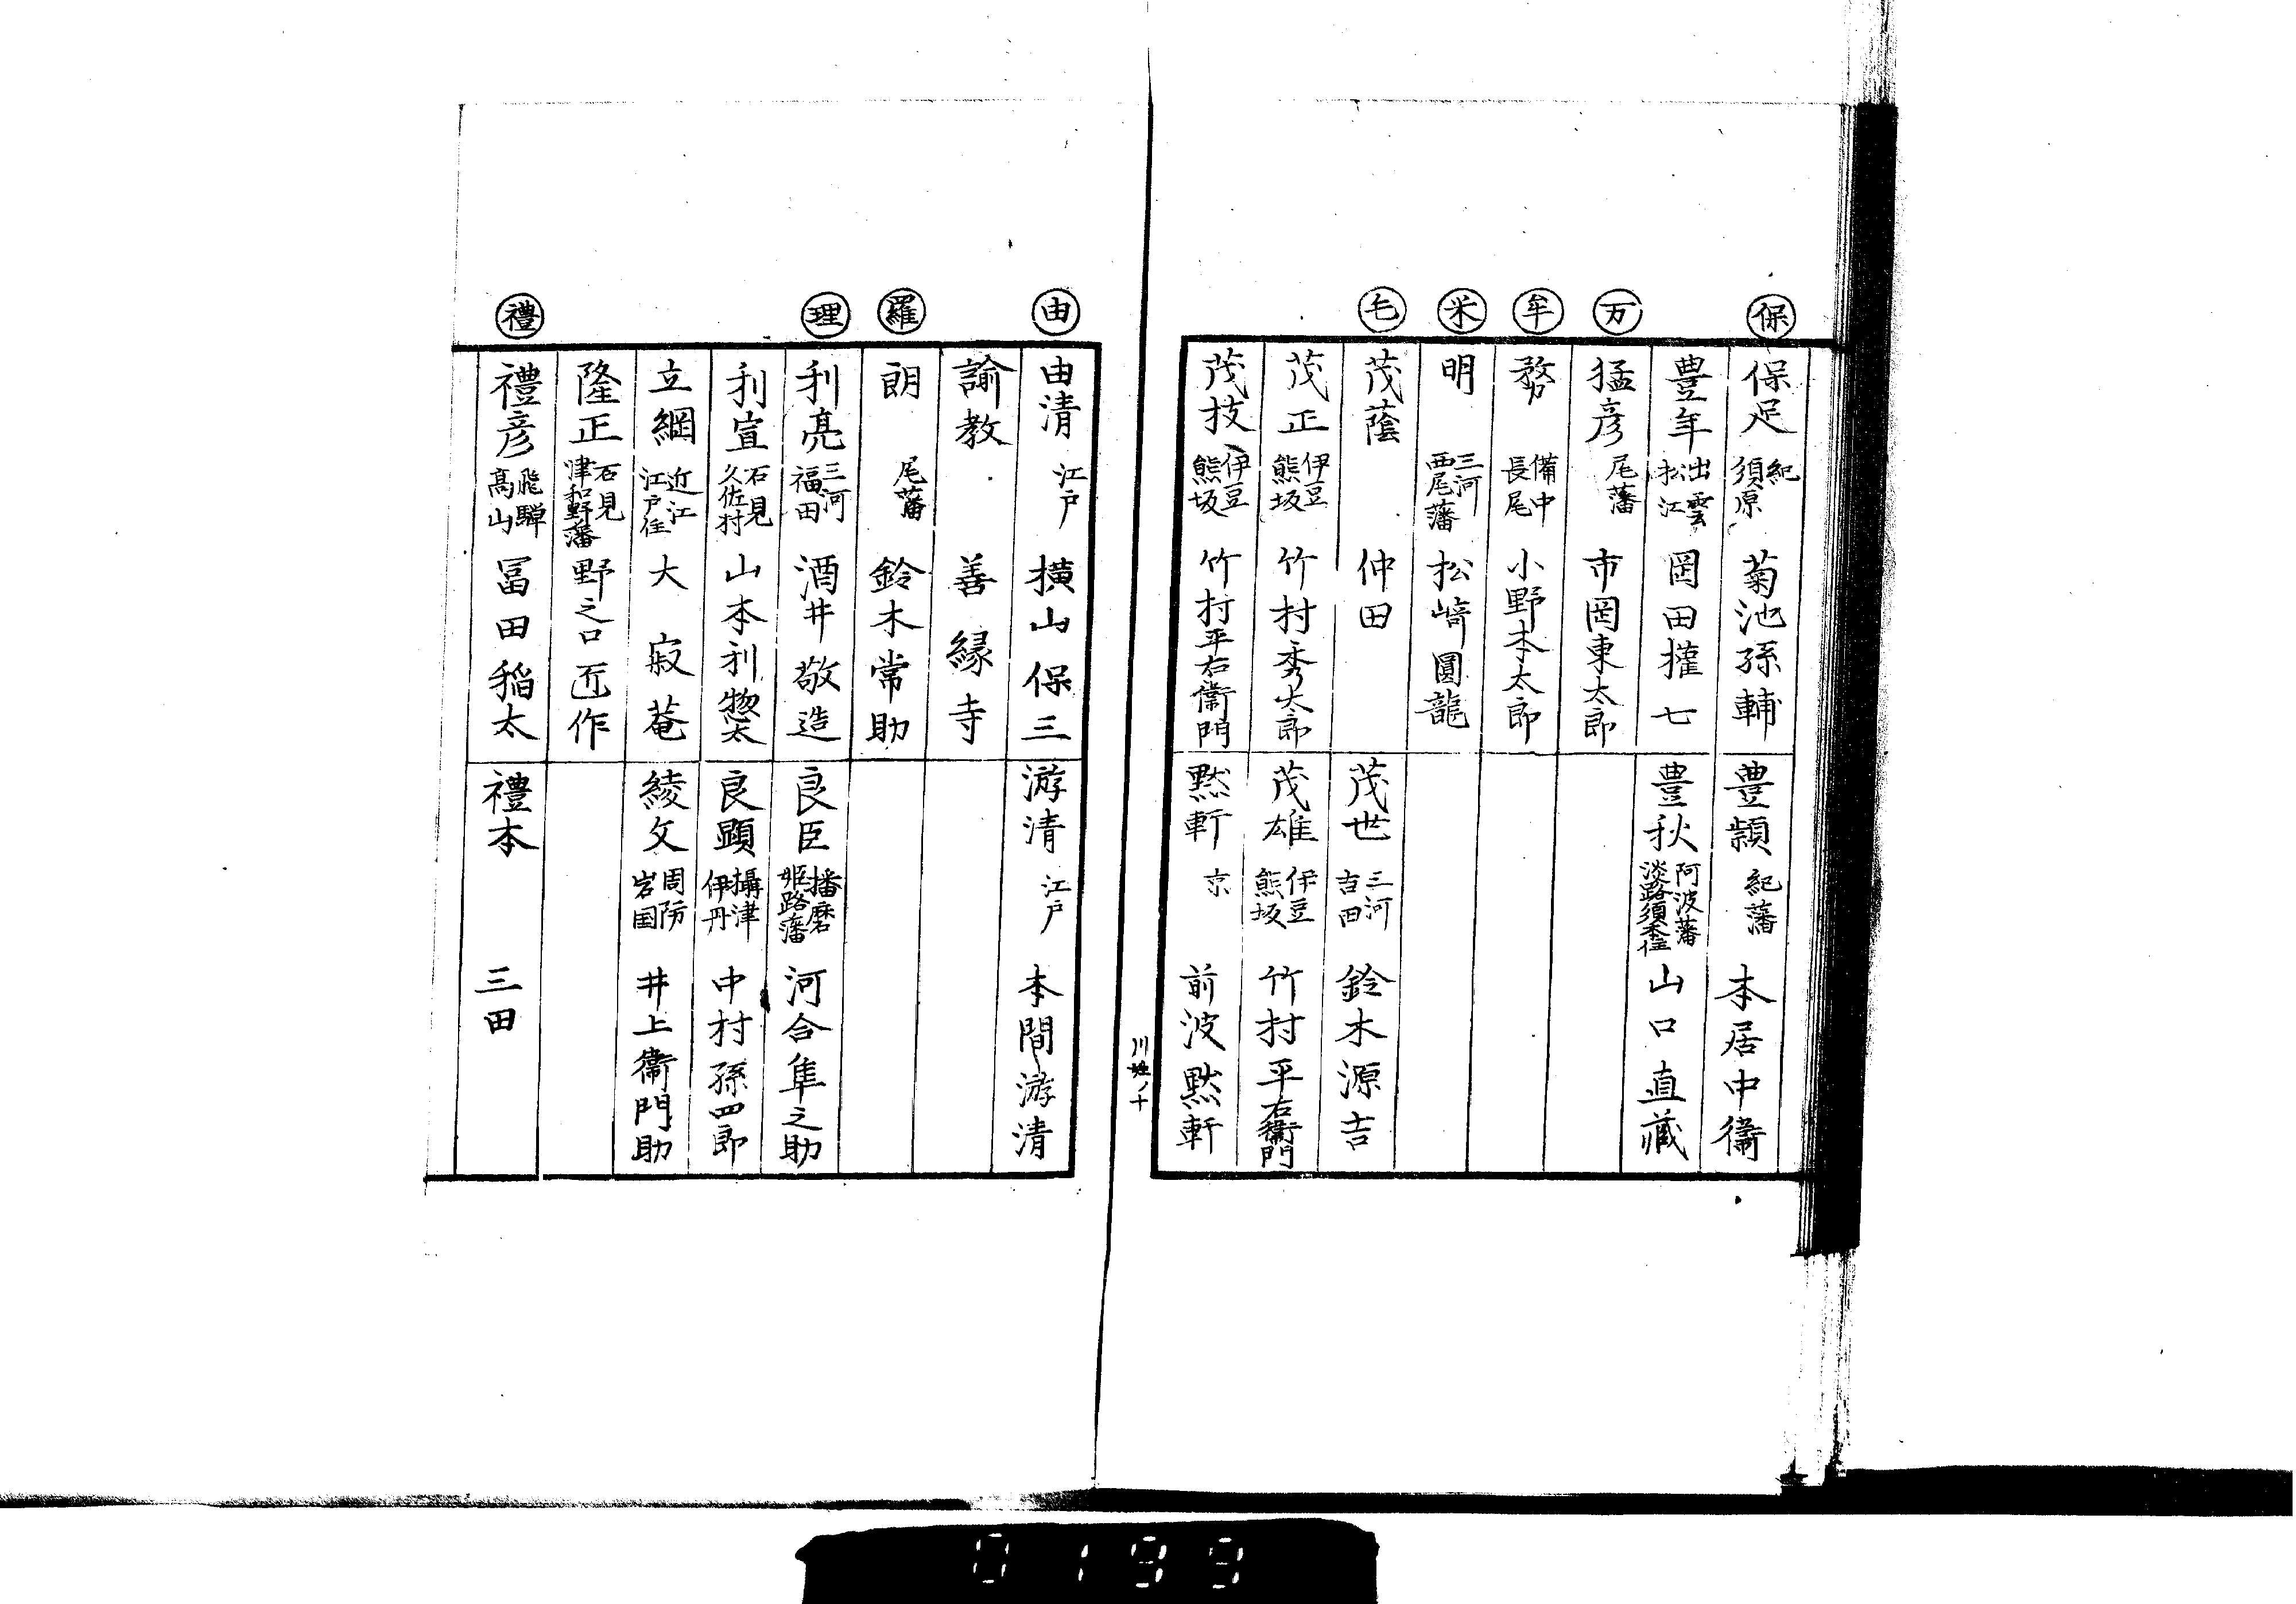 保
保足 紀 須原 菊池孫輔
豊穎 紀藩 本居中衞
豊年 出雲 松江 岡田權七
豊秋 阿波藩 淡路須本住 山口直藏
万
猛彦 尾藩 市岡東太郎
牟
務 備中 長尾 小野本太郎
米
明 三河 西尾藩 松﨑圓龍
毛
茂蔭 仲田
茂世 三河 吉田 鈴木源吉
茂正 伊豆 熊坂 竹村秀太郎
茂雄 伊豆 熊坂 竹村平右衞門
茂技 伊豆 熊坂 竹村平右衞門
黙軒 京 前波黙軒
由
由清 江戸 横山保三
游清 江戸 本間游清
諭教 善縁寺
羅
朗 尾藩 鈴木常助
理
利亮 三河 福田 酒井敬造
良臣 播磨 姫路藩 河合隼之助
利宣 石見 久佐村 山本利惣太
良顕 攝津 伊丹 中村孫四郎
立綱 近江 江戸住 大寂菴
綾文 周防 岩国 井上衞門助
隆正 石見 津和野藩 野之口匹作
禮
禮彦 飛騨 高山 冨田稲太
禮本 三田
0199